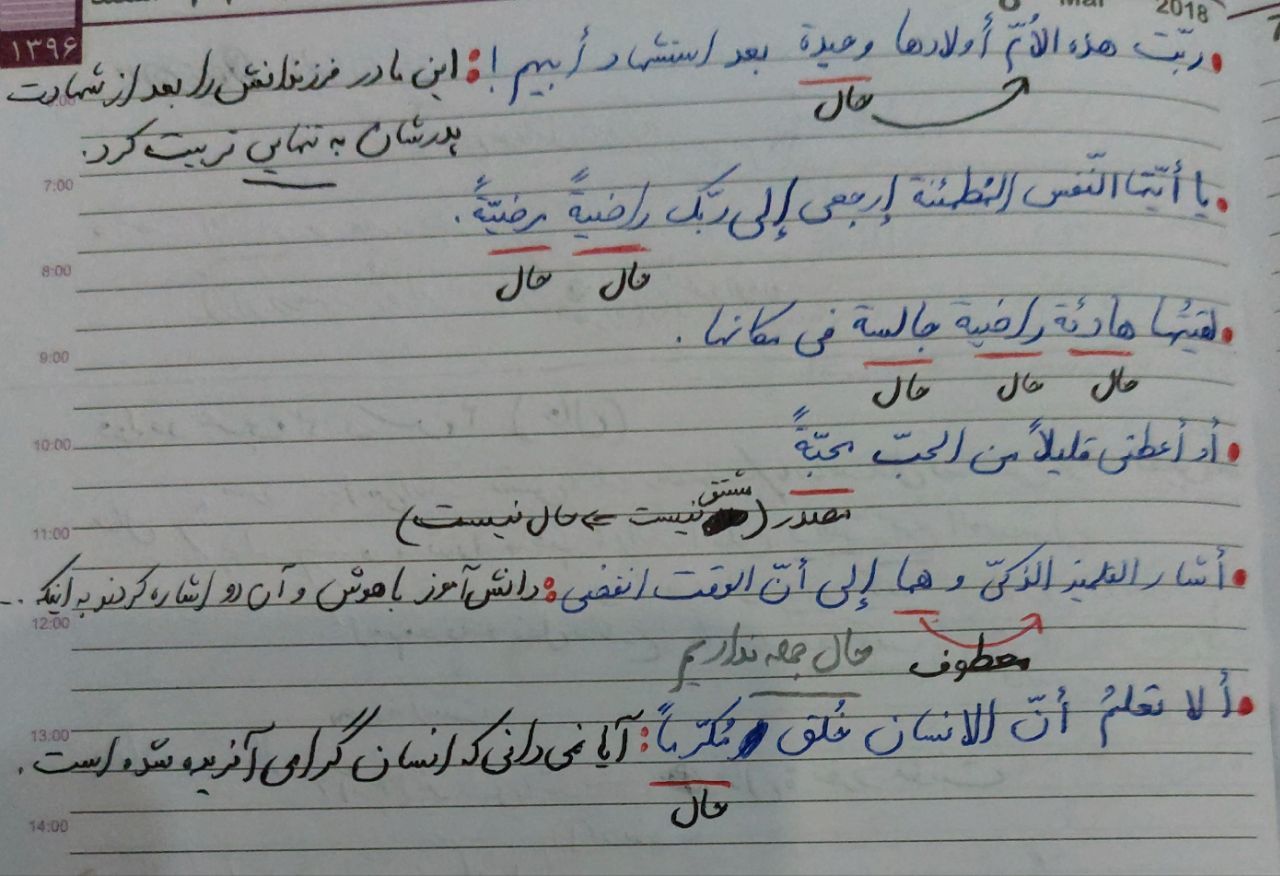 2018
۱۳۹۶
ربّت هذه الأمّ أولادها وحیدة بعد استشهاد أبیهم !: این مادر فرزندانش را بعد از شهادت
حال
پدرشان به تنهایی تربیت کرد.
7:00
یا أیّتها النّفس المُطمئنة إرجعی إلی ربّک راضیةً مرضیّةً.
8:00
حال حال
لقیتُها هادئة راضیة جالسة فی مکانها.
9:00
حال حال حال
10:00
أو أعطنی قلیلاً من الحبّ محبّةً
مشتق
مصدر (نیست ⇐ حال نیست)
11:00
أشار التلمیذ الذکیّ و هما إلی أنّ الوقت انقضی: دانش آموز باهوش و آن دو اشاره کردند به اینکه ...
12:00
معطوف حال جمعه نداریم
ألا تعلمُ أنّ الانسان خُلق مُکرّماً: آیا نمی دانی که انسان گرامی آفریده شده است.
13:00
حال
14:00